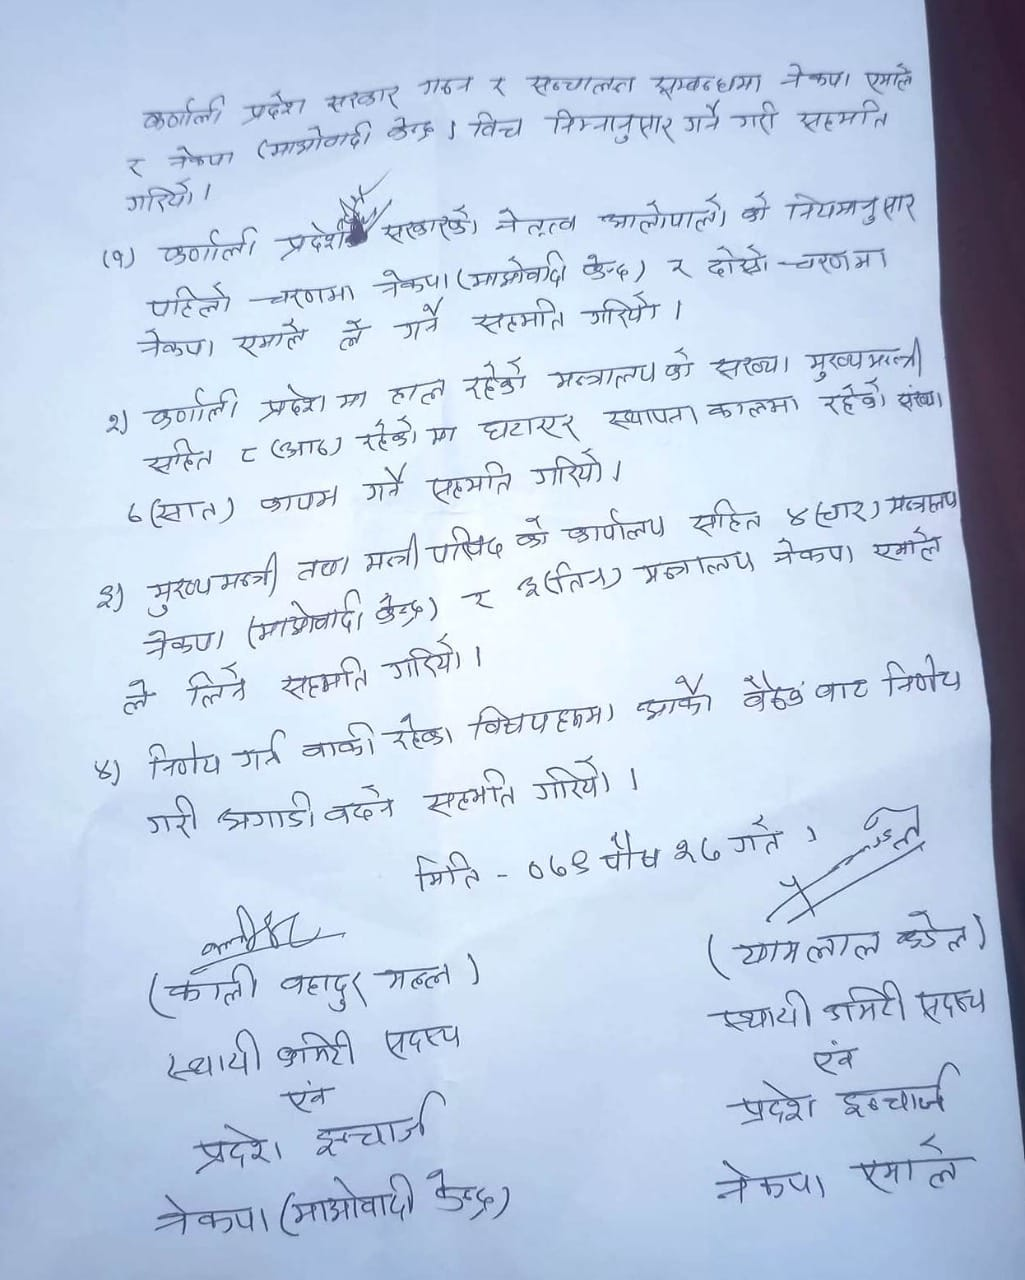 कर्णाली प्रदेश सरकार गठन र सन्चालन सम्बन्धमा नेकपा एमाले
र नेकपा (माओवादी केन्द्र) विच निम्नानुसार गर्ने गरी सहमति
गरियो।
(१) कर्णाली प्रदेश सरकारको नेतृत्व आलोपालो को नियमानुसार
पहिलो चरणमा नेकपा (माओवादी केन्द्र) र दोस्रो चरणमा
नेकपा एमाले ले गर्ने सहमति गरियो।
२) कर्णाली प्रदेश मा हाल रहेको मन्त्रालय को संख्या मुख्यमन्त्री
सहित ८ (आठ) रहेको मा घटाएर स्थापना कालमा रहेको संख्या
७ (सात) कायम गर्ने सहमति गरियो।
३) मुख्यमन्त्री तथा मन्त्री परिषद को कार्यालय सहित ४ (चार) मन्त्रालय
नेकपा (माओवादी केन्द्र) र ३ (तिन) मन्त्रालय नेकपा एमाले
ले लिने सहमति गरियो।
४) निर्णय गर्न वाकी रहेका विषयहरुमा अर्को बैठक वाट निर्णय
गरी अगाडी वढ्ने सहमति गरियो।
मिति - ०७९ पौष २७ गते।
(काली वहादुर मल्ल)
स्थायी कमिटी सदस्य
एंव
प्रदेश इन्चार्ज
नेकपा (माओवादी केन्द्र)
(यामलाल कंडेल)
स्थायी कमिटी सदस्य
एंव
प्रदेश इन्चार्ज
नेकपा एमाले